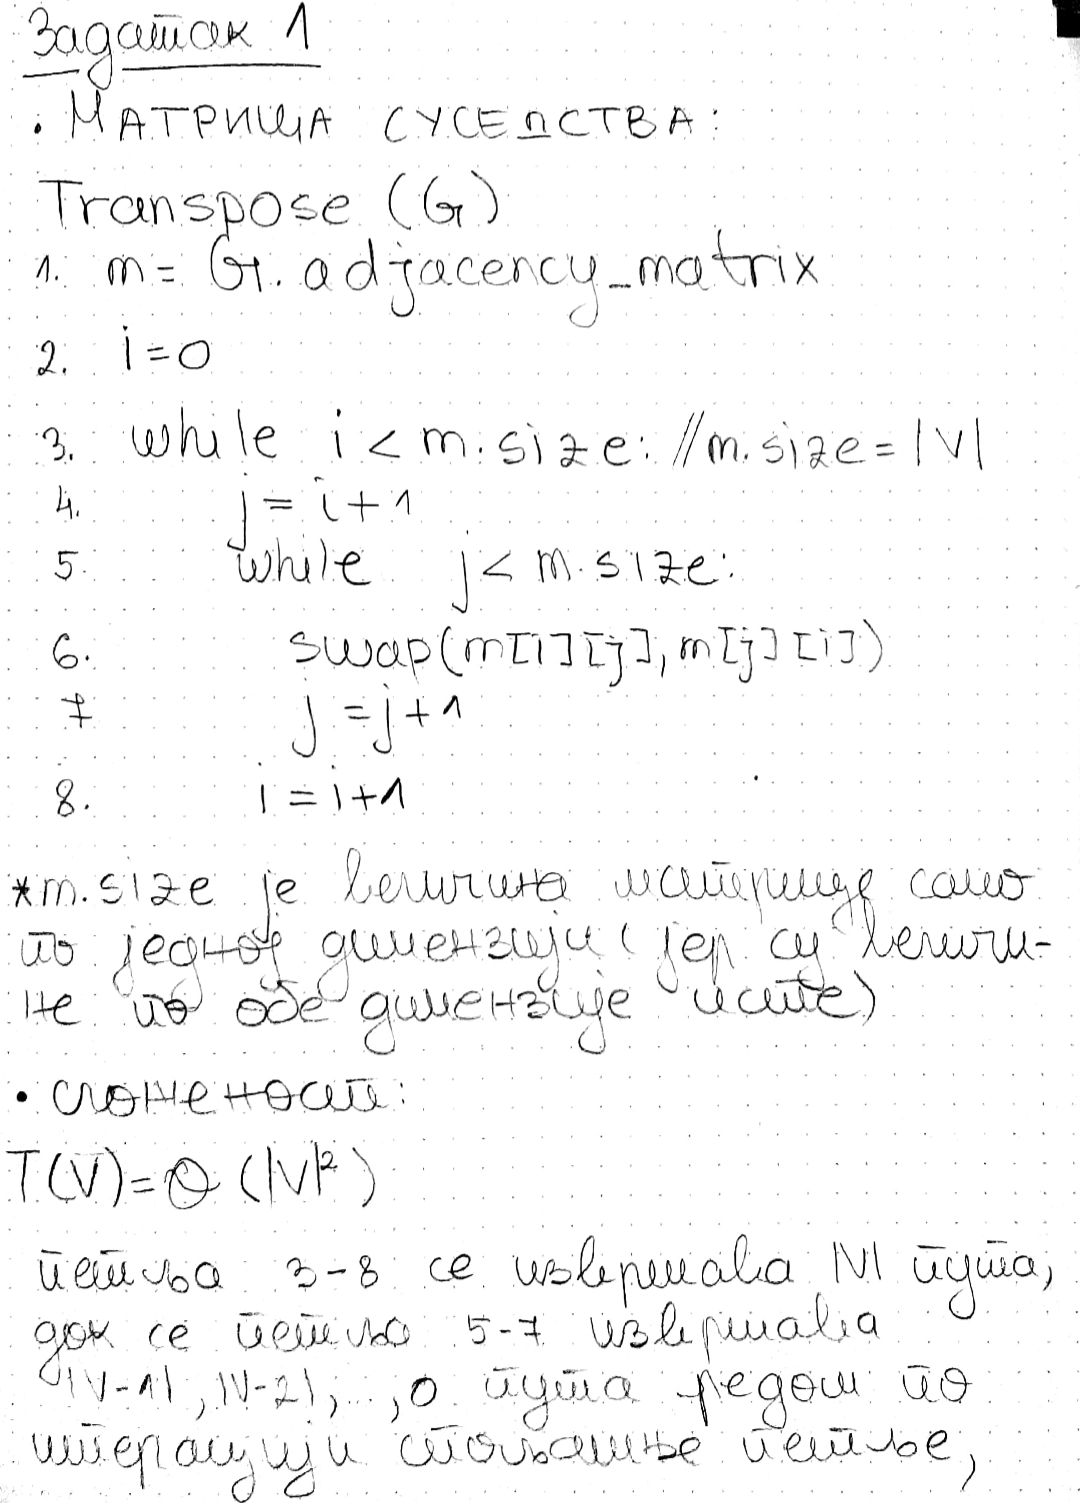 Задатак 1
• МАТРИЦА СУСЕДСТВА:
Transpose (G)
1. m = G.adjacency_matrix
2. i=0
3. while i < m.size: //m.size = |V|
4. j = i+1
5. while j < m.size:
6. swap(m[i][j], m[j][i])
7 j = j+1
8. i = i+1
*m.size је величина матрице само
по једној димензији (јер су величи-
не по обе димензије исте)
• сложеност:
T(V) = Θ (|V|²)
петља 3-8 се извршава |V| пута,
док се петља 5-7 извршава
|V-1|, |V-2|, ..., 0 пута редом по
итерацији спољашње петље,